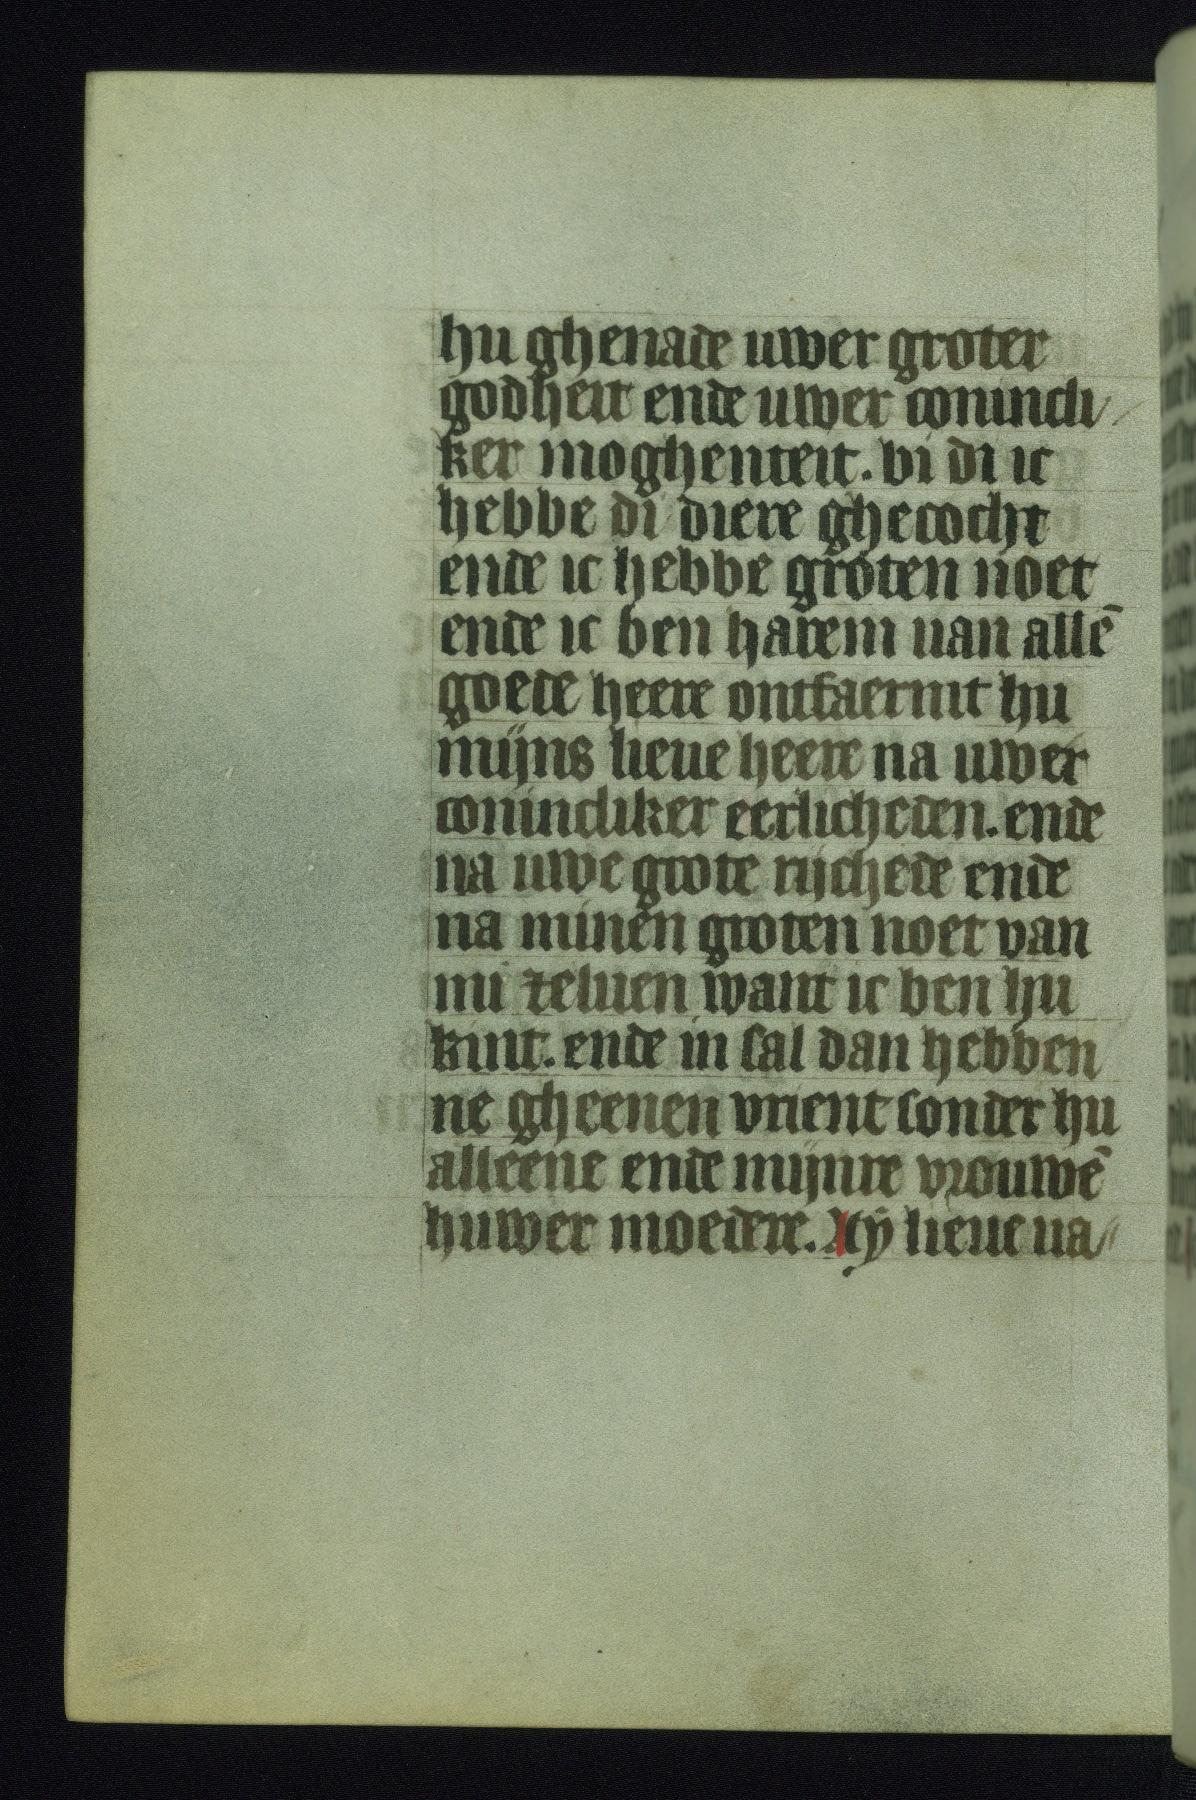 hu ghenade uwer groter
godheit ende uwer conincli
ker moghenteit. bi di ic
hebbe di diere ghecocht
ende ic hebbe groten noet
ende ic ben harem uan allē
goede heere ontfaermt hu
mijns lieue heere na uwer
conincliker eerlicheden. ende
na uwe grote rijchede ende
na minen groten noet van
mi zeluen want ic ben hu
kint. ende in sal dan hebben
ne gheenen vrient sonder hu
alleene ende mijnre vrouwē
huwer moedere. Ay lieue ua